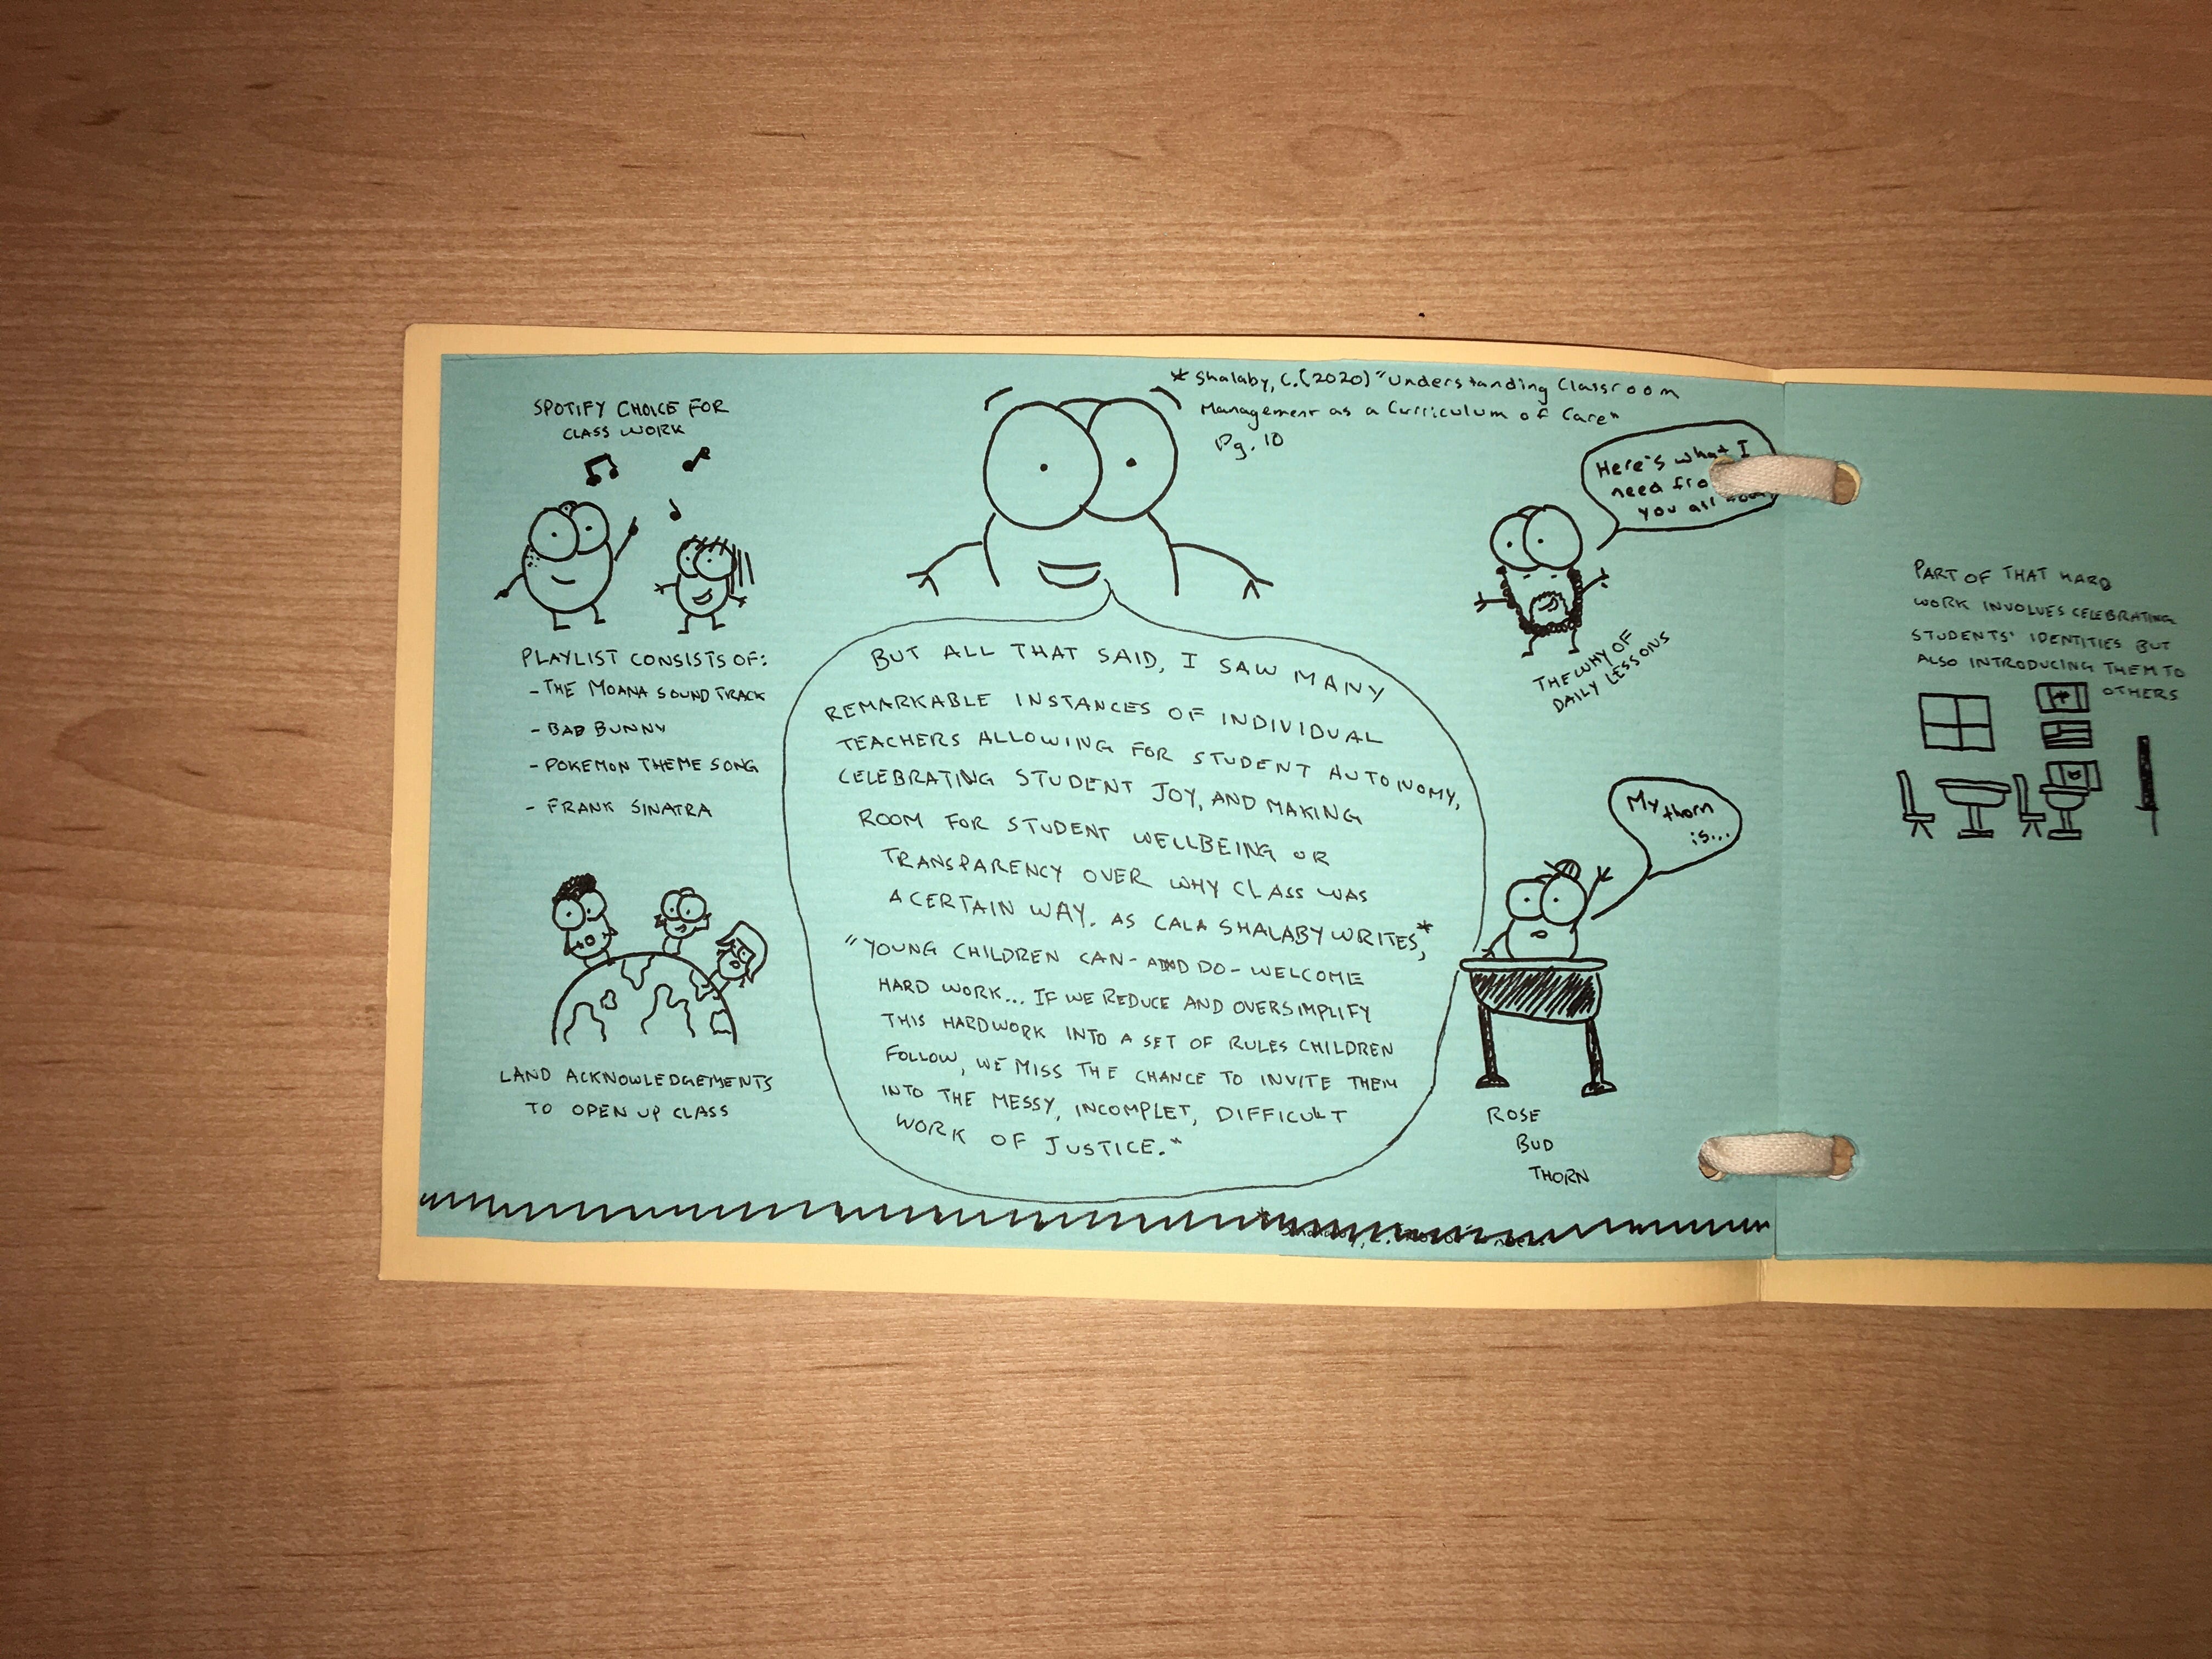 SPOTIFY CHOICE FOR
CLASS WORK
PLAYLIST CONSISTS OF:
- THE MOANA SOUND TRACK
- BAD BUNNY
- POKEMON THEME SONG
- FRANK SINATRA
LAND ACKNOWLEDGEMENTS
TO OPEN UP CLASS
* Shalaby, C. (2020) "Understanding Classroom
Management as a Curriculum of Care"
Pg. 10
BUT ALL THAT SAID, I SAW MANY
REMARKABLE INSTANCES OF INDIVIDUAL
TEACHERS ALLOWING FOR STUDENT AUTONOMY,
CELEBRATING STUDENT JOY, AND MAKING
ROOM FOR STUDENT WELLBEING OR
TRANSPARENCY OVER WHY CLASS WAS
A CERTAIN WAY. AS CALA SHALABY WRITES,*
"YOUNG CHILDREN CAN - AND DO - WELCOME
HARD WORK... IF WE REDUCE AND OVERSIMPLIFY
THIS HARDWORK INTO A SET OF RULES CHILDREN
FOLLOW, WE MISS THE CHANCE TO INVITE THEM
INTO THE MESSY, INCOMPLET, DIFFICULT
WORK OF JUSTICE."
Here's what I
need
you all
THE WHY OF
DAILY LESSONS
My thorn
is...
ROSE
BUD
THORN
PART OF THAT HARD
WORK INVOLVES CELEBRATING
STUDENTS' IDENTITIES BUT
ALSO INTRODUCING THEM TO
OTHERS